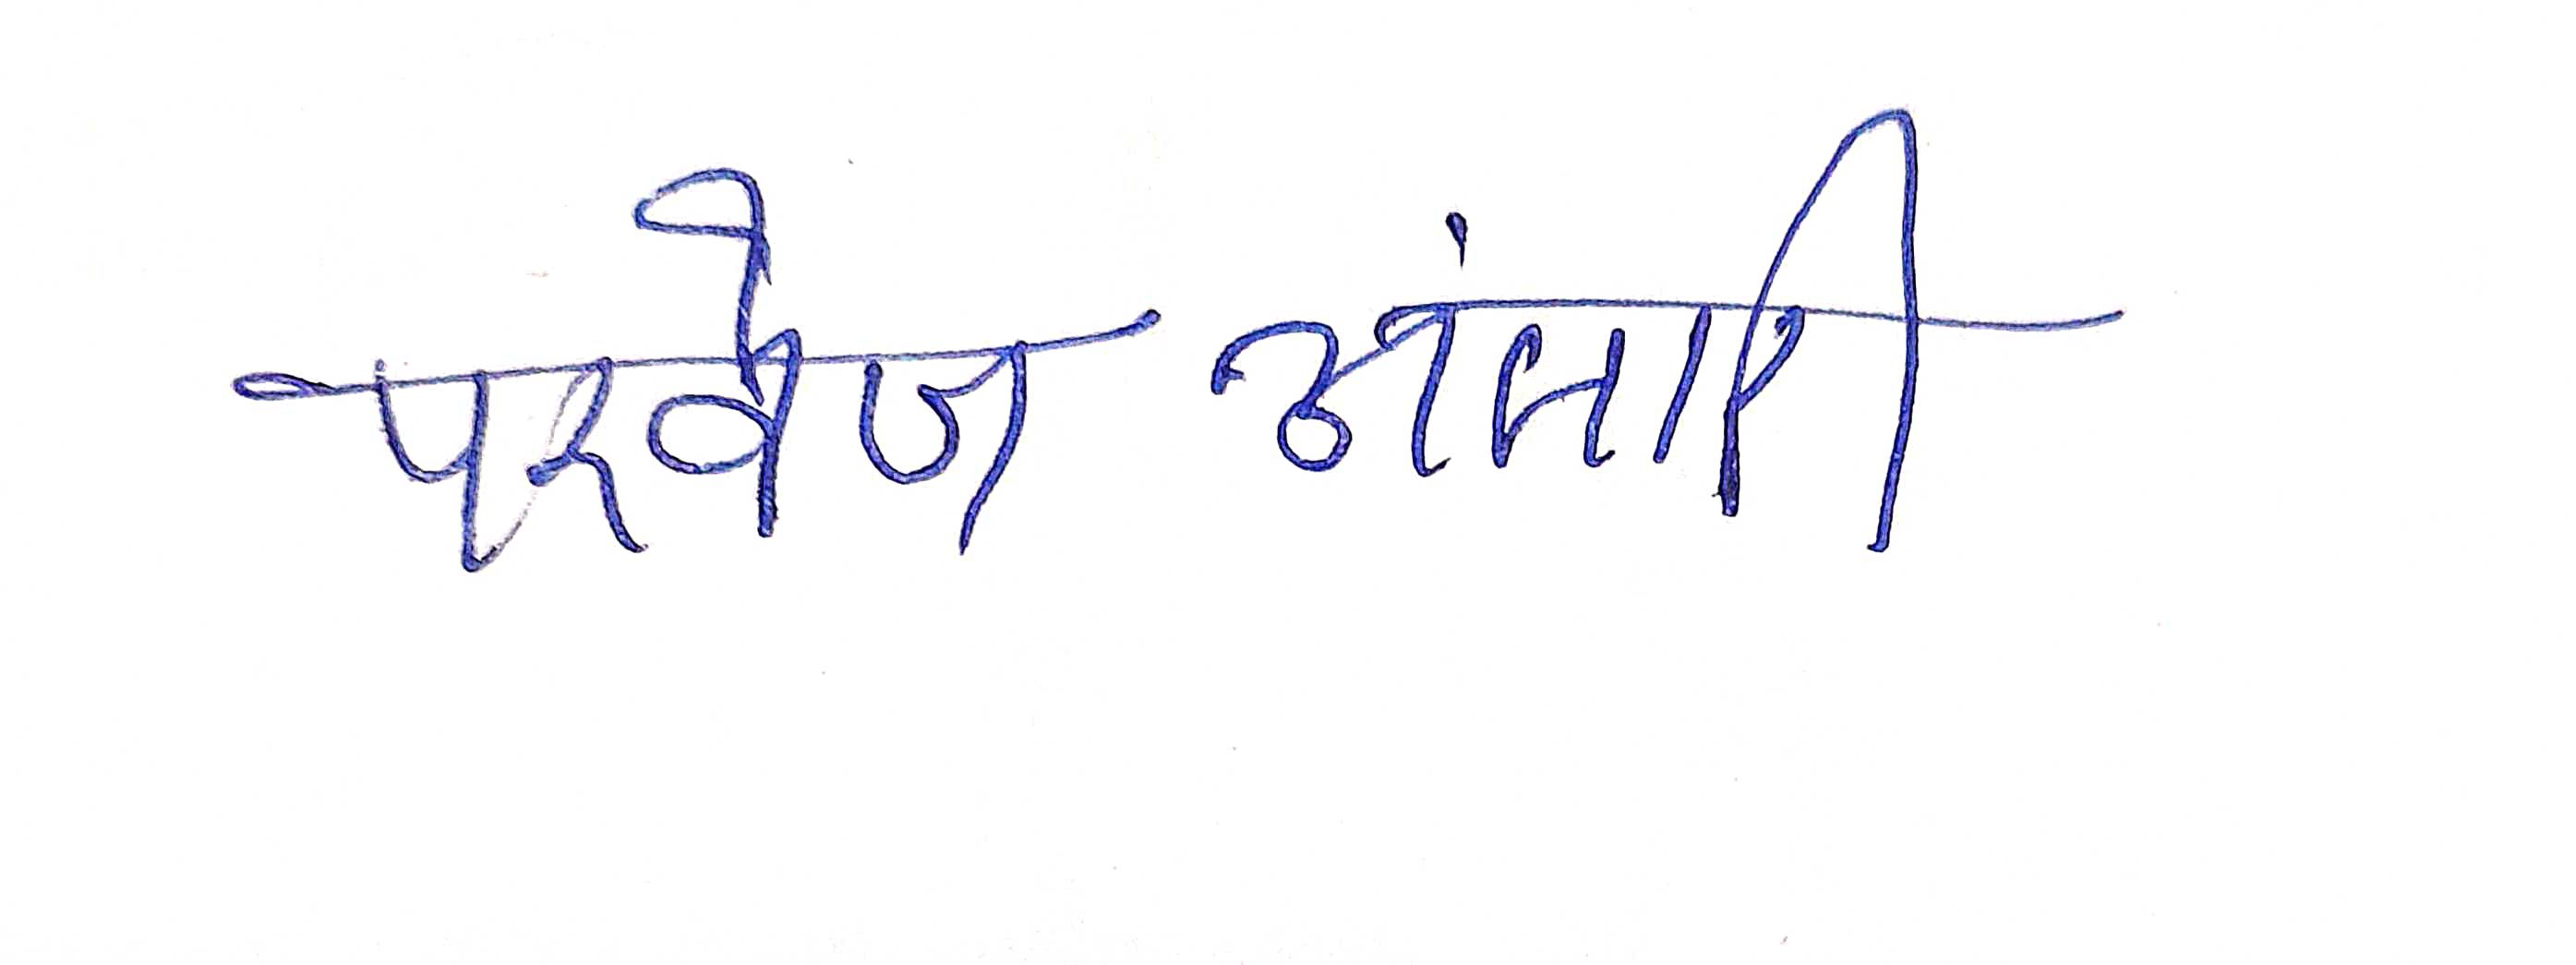 परवेज अंसारी